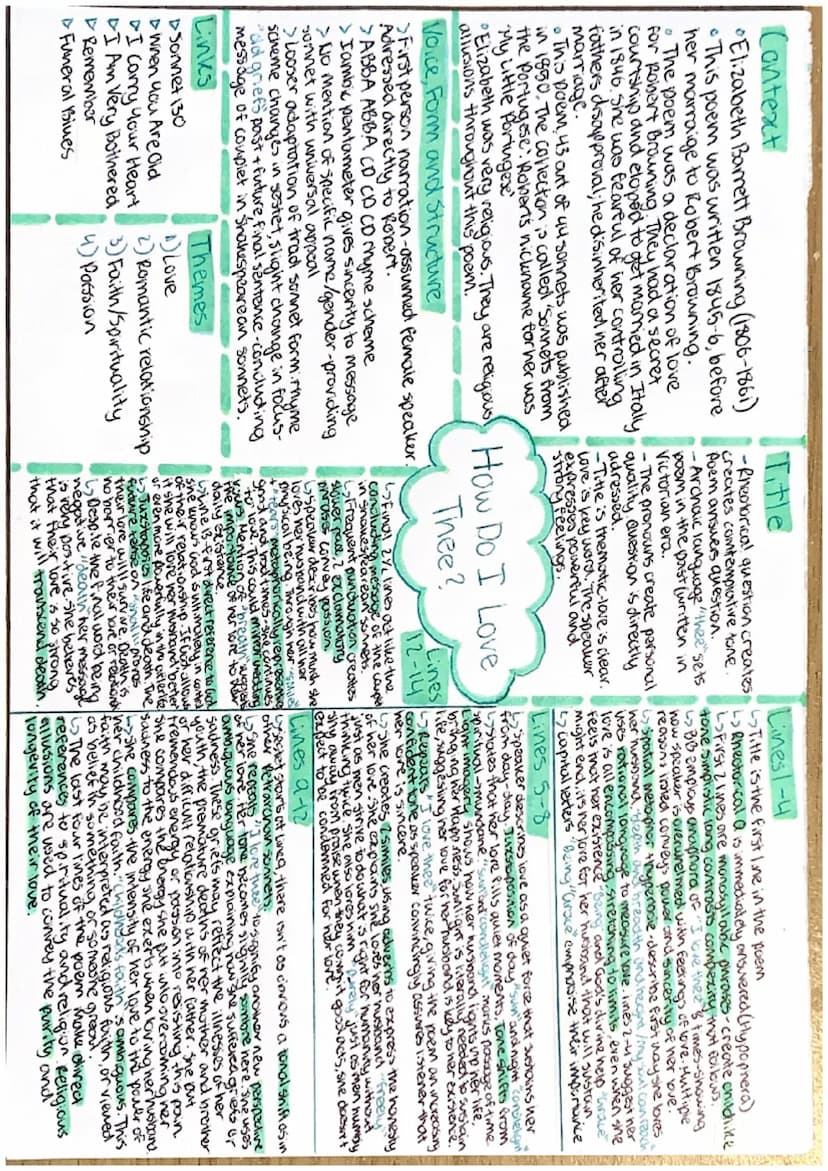 Context
• Elizabeth Barrett Browning (1806-1861)
• This poem was written 1845-6, before
her marraige to Robert Browning.
• The poem was a declaration of love
for Robert Browning. They had a secret
courtship and eloped to get married in Italy
in 1846. She was fearful of her controlling
fathers disaproval; he disinherited her after
marriage.
• This poem, 43 out of 44 sonnets was published
in 1850. The collection is called 'Sonnets from
the Portugese'. Roberts nickname for her was
'My Little Portugese'
• Elizabeth was very religious. They are religious
allusions throughout this poem.
Title
- Rhetorical question creates
creates comtemplative tone.
Poem answers question.
- Archaic language "thee" sets
poem in the past (written in
Victorian era.
- The pronouns create personal
quality. Question is directly
adressed.
- Title is thematic, love is clear.
Love is key word. The speaker
expresses powerful and
strong feelings.
Lines 1-4
↳ Title is the first line in the poem
↳ Rhetorical Q is immediately answered (Hypophera)
↳ First 2 lines are monosyllabic phrases create childlike
tone. simplistic long contrasts complexity that follows.
↳ BB employs anaphora of "I love thee" 8 times - showing
how speaker is overwhelmed with feelings of love. Multiple
reasons listed conveys power and sincerity of her love.
↳ Spatial metaphor + hyperbole - describe first way she loves
her husband, "depth and breadth and height / my soul can reach"
uses rational language to measure love. Lines 2-4 suggest her
love is all encompassing, stretching to limits, even when she
feels that her existence "Being" and God's divine help "Grace"
might end, its her love for her husband that will sustain
↳ Capital letters "Being" "Grace" emphasise their importance
Voice, Form and Structure
> First person narration - assumed female speaker.
Adressed directly to Robert.
> ABBA ABBA CD CD CD rhyme scheme
> Iambic pentameter gives sincerity to message
> No mention of specific name/gender - providing
sonnet with universal appeal
> Looser adaptation of trad sonnet form. rhyme
scheme changes in sestet, slight change in focus-
"old griefs" past + future. Final sentence - concluding
message of couplet in Shakespearean sonnets.
How Do I Love
Thee?
Lines 5-8
↳ Speaker describes love as a quiet force that sustains her
from day-day. Juxtaposition of day "sun" and night "candlelight"
shows that her love fills quiet moments. Tone shifts from
spiritual-mundane "sun and candlelight" marks passage of time
↳ Light imagery shows how her husband lights up her life,
bringing her happiness. Sunlight is literally needed to sustain
life, suggesting her love for her husband is key to her existence
↳ Repeats "I love thee" twice, giving the poem an increasing
confident tone as speaker convincingly assures listener that
her love is sincere.
↳ She creates 2 similes using adverbs to express the honesty
of her love. She explains she loves her husband "freely"
just as men strive to do what is right for humanity without
thinking twice. She also loves him "purely" just as men humbly
shy away from praise when they commit good acts, she doesn't
expect to be commended for her love.
Links
▷ Sonnet 130
▷ When You Are Old
▷ I Carry Your Heart
▷ I Am Very Bothered
▷ Remember
▷ Funeral Blues
Themes
1) Love
2) Romantic relationship
3) Faith/spirituality
4) Passion
Lines
12-14
↳ Final 2 ½ lines act like the
concluding message of the couplet
in Shakespearean sonnets
↳ Frequent punctuation creates
slower pace, 2 exclamatory
phrases convey passion
↳ Speaker describes how much she
loves her husband with all her
physical being. Through her "smiles"
+ "tears" metaphorically representing
good and bad times - she continues
the importance of her love to her
daily existence.
↳ Line 13 - first direct reference to God
she knows God is ultimately in control
of their relationship. If God allows
it she will love her husband better
or even more powerfully in the afterlife
↳ Juxtaposes life and death. The
future tense on "shall" proves
their love will survive. Death is
no barrier to their love or relationship
↳ Despite the final word being
negative "death" her message
is very positive. She believes
that their love is so strong
that it will transcend death.
Lines 9-12
↳ Sestet starts at line 9, there isn't as obvious a tonal shift as in
other Petrarchan sonnets
↳ She repeats "I love thee" to signify another new perspective
of her love. Her tone becomes slightly sombre here. She uses
ambiguous language explaining how she suffered griefs or
sadness. These griefs may reflect the illnesses of her
youth, the premature deaths of her mother and brother
or her difficult relationship with her father. She put
tremendous energy or passion into resisting this pain.
She compares the energy she put into overcoming her
sadness to the energy she exerts when loving her husband
↳ She compares the intensity of her love to the power of
her childhood faith. "Childhood's faith" is ambiguous. This
faith may be interpreted as religious faith, or viewed
as belief in something or someone great.
↳ The last four lines of the poem make direct
references to spirituality and religion. Religious
allusions are used to convey the purity and
longevity of their love.